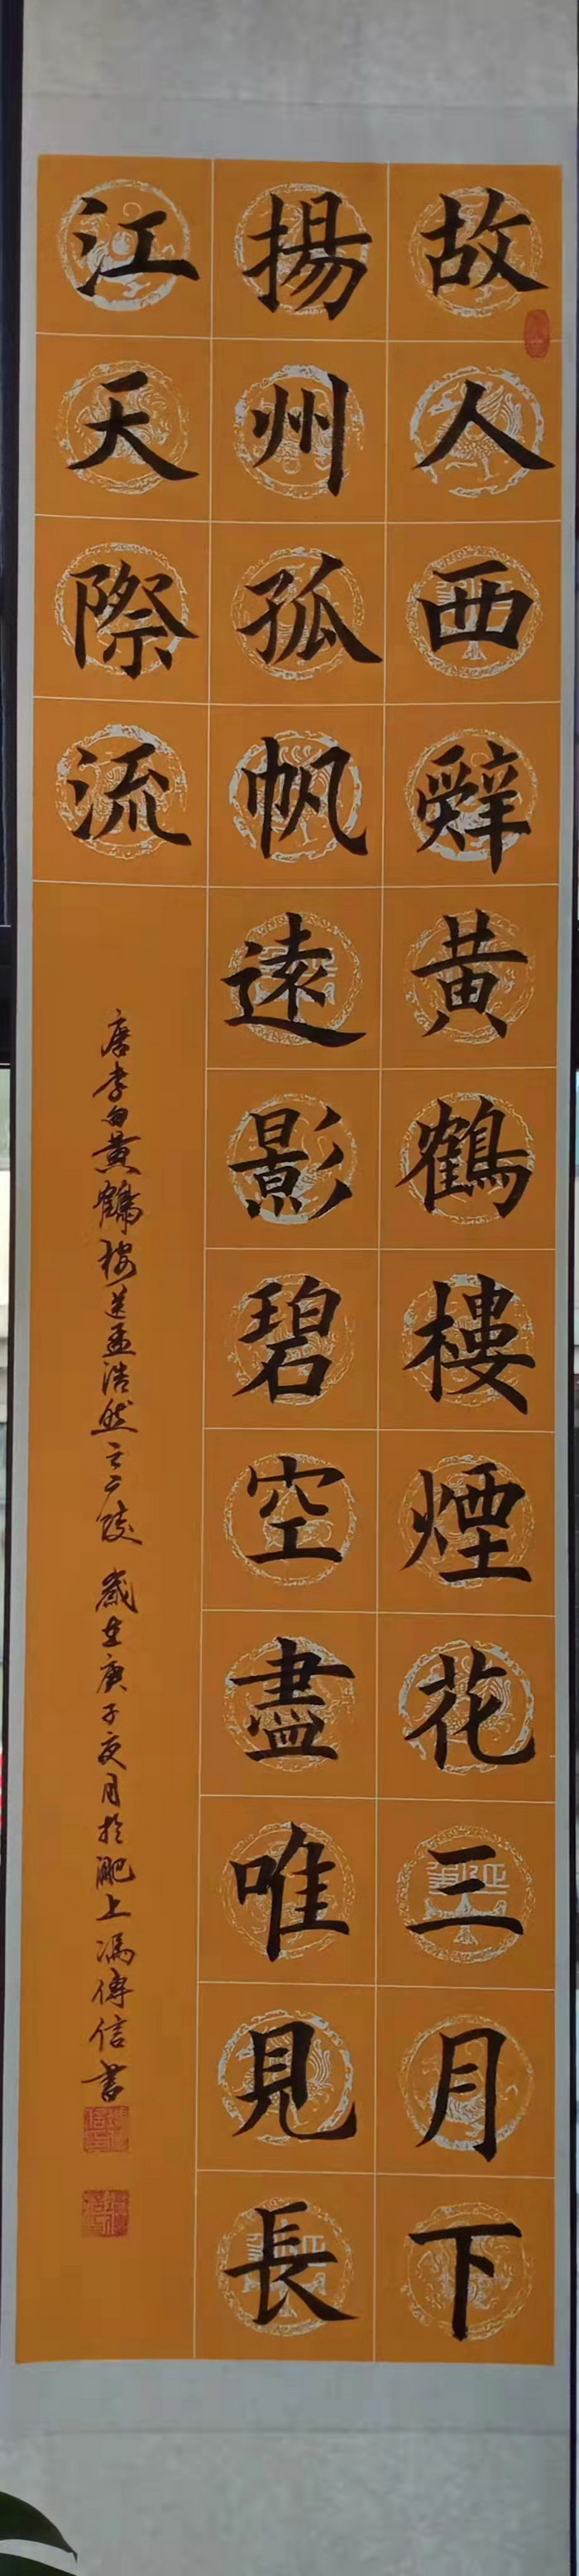 故人西辤黄鶴樓煙花三月下
揚州孤帆遠影碧空盡唯見長
江天際流
唐李白黄鶴樓送孟浩然之广陵 歲在庚子夜月於淝上馮傳信書